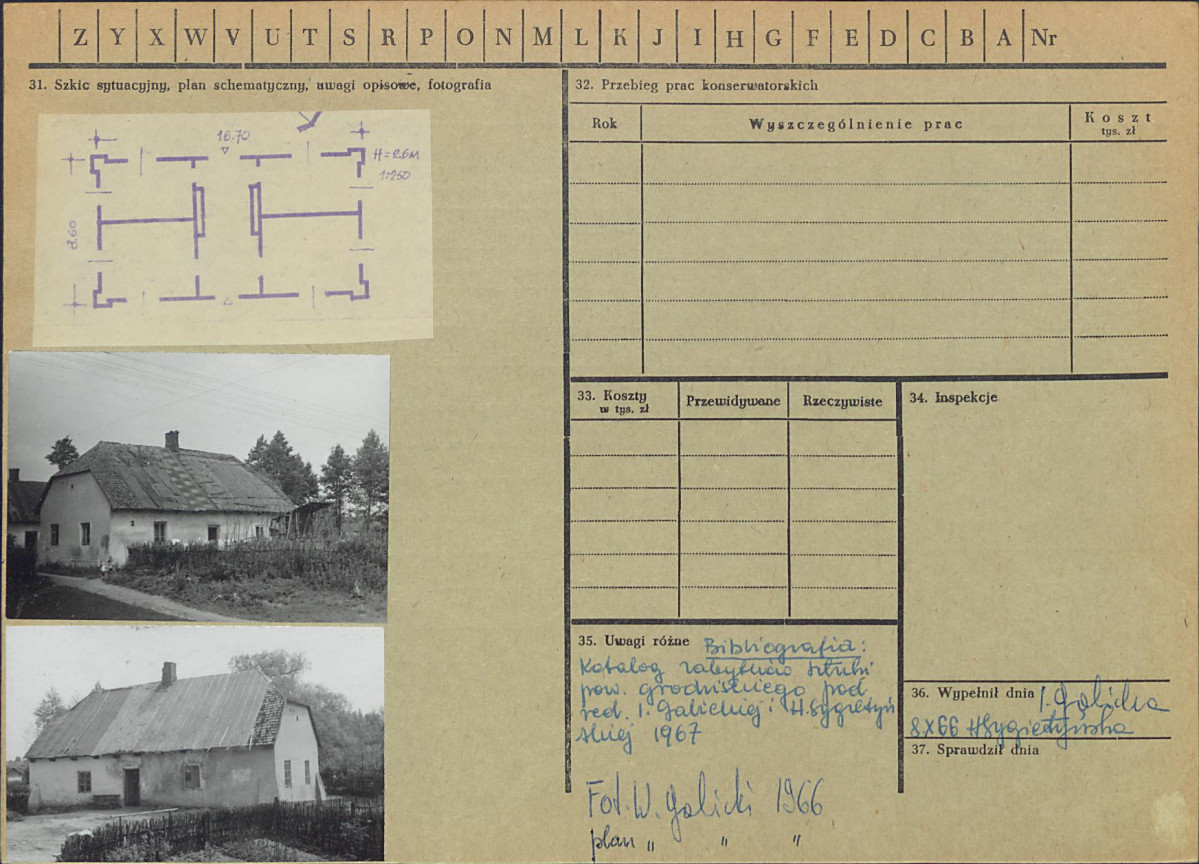 Z Y X W V U T S R P O N M L K J I H G F E D C B A Nr
31. Szkic sytuacyjny, plan schematyczny, uwagi opisowe, fotografia
16.70
H=2.6M
1:250
8.60
32. Przebieg prac konserwatorskich
Rok Wyszczególnienie prac Koszt
tys. zł
33. Koszty Przewidywane Rzeczywiste
w tys. zł
34. Inspekcje
35. Uwagi różne Bibliografia:
Katalog zabytków sztuki
pow. grodziskiego pod
red. I. Galickiej i H. Sygietyń
skiej 1967
Fot. W. Galicki 1966
plan „ „ „
36. Wypełnił dnia I. Galicka
8 X 66 H Sygietyńska
37. Sprawdził dnia